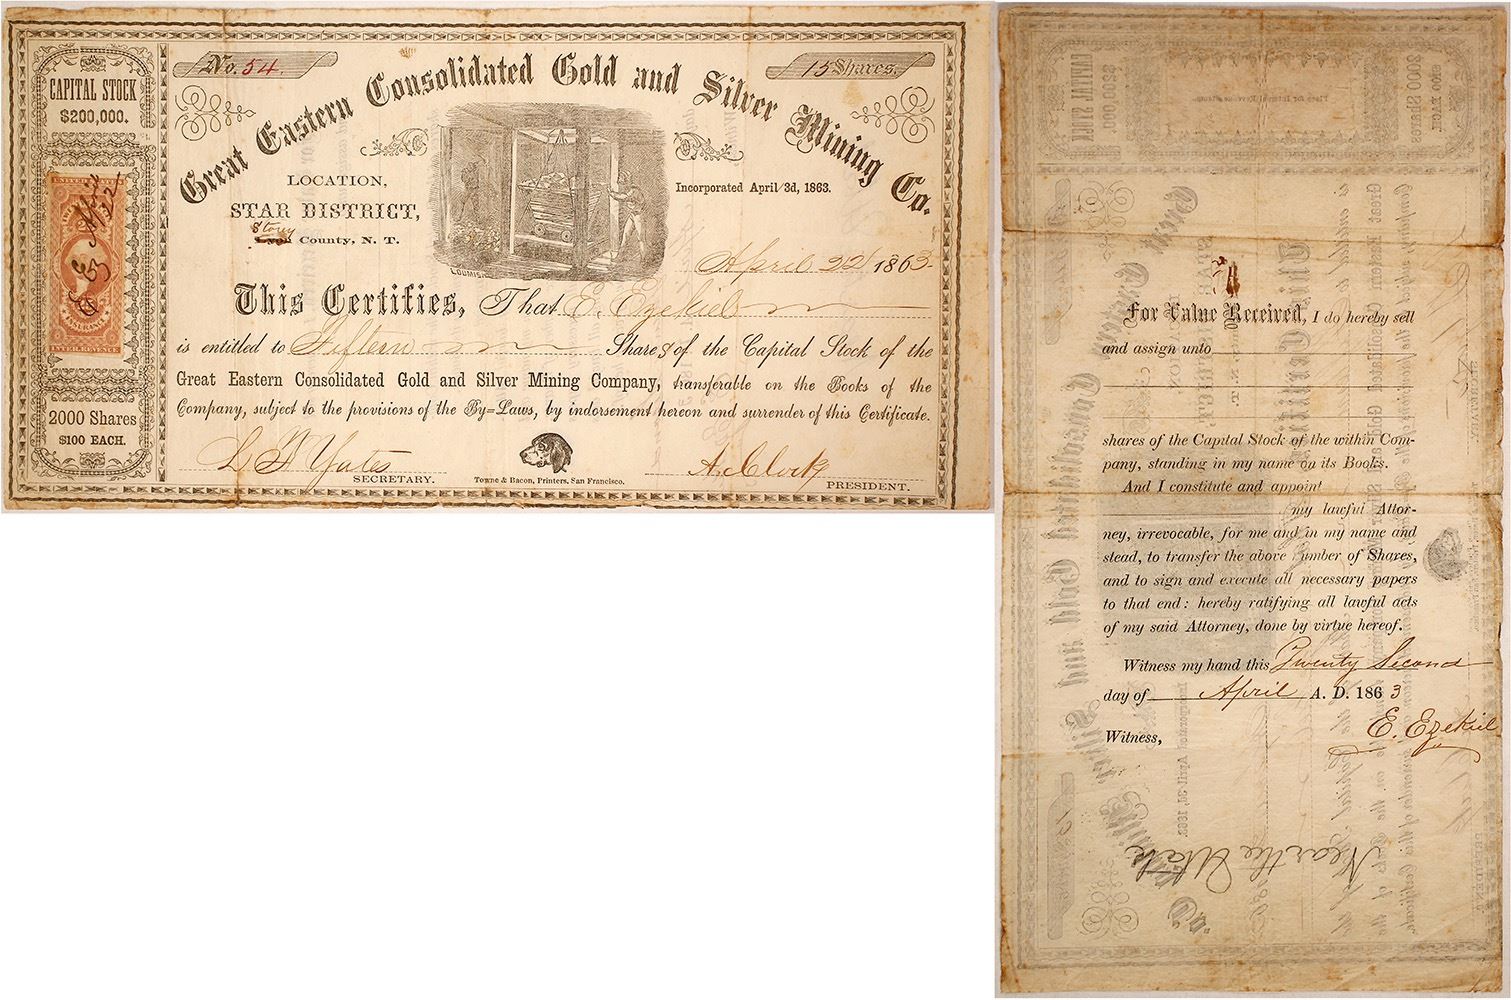 No. 54.
15 Shares.
Great Eastern Consolidated Gold and Silver Mining Co.
CAPITAL STOCK
$200,000.
LOCATION,
STAR DISTRICT,
Storey
Lyon County, N. T.
Incorporated April 3d, 1863.
LOOMIS.
April 22 1863
UNITED STATES
E Ez April 22
INSURANCE
INTER. REVENUE
This Certifies, That E. Ezekiel
is entitled to Fifteen Shares of the Capital Stock of the
Great Eastern Consolidated Gold and Silver Mining Company, transferable on the Books of the
Company, subject to the provisions of the By=Laws, by indorsement hereon and surrender of this Certificate.
2000 Shares
$100 EACH.
Yates
SECRETARY.
Towne & Bacon, Printers, San Francisco.
A. Clock
PRESIDENT.
For Value Received, I do hereby sell
and assign unto
shares of the Capital Stock of the within Com-
pany, standing in my name on its Books.
And I constitute and appoint
my lawful Attor-
ney, irrevocable, for me and in my name and
stead, to transfer the above number of Shares,
and to sign and execute all necessary papers
to that end: hereby ratifying all lawful acts
of my said Attorney, done by virtue hereof.
Witness my hand this Twenty Second
day of April A. D. 1863
Witness,
E. Ezekiel
Near the Utah